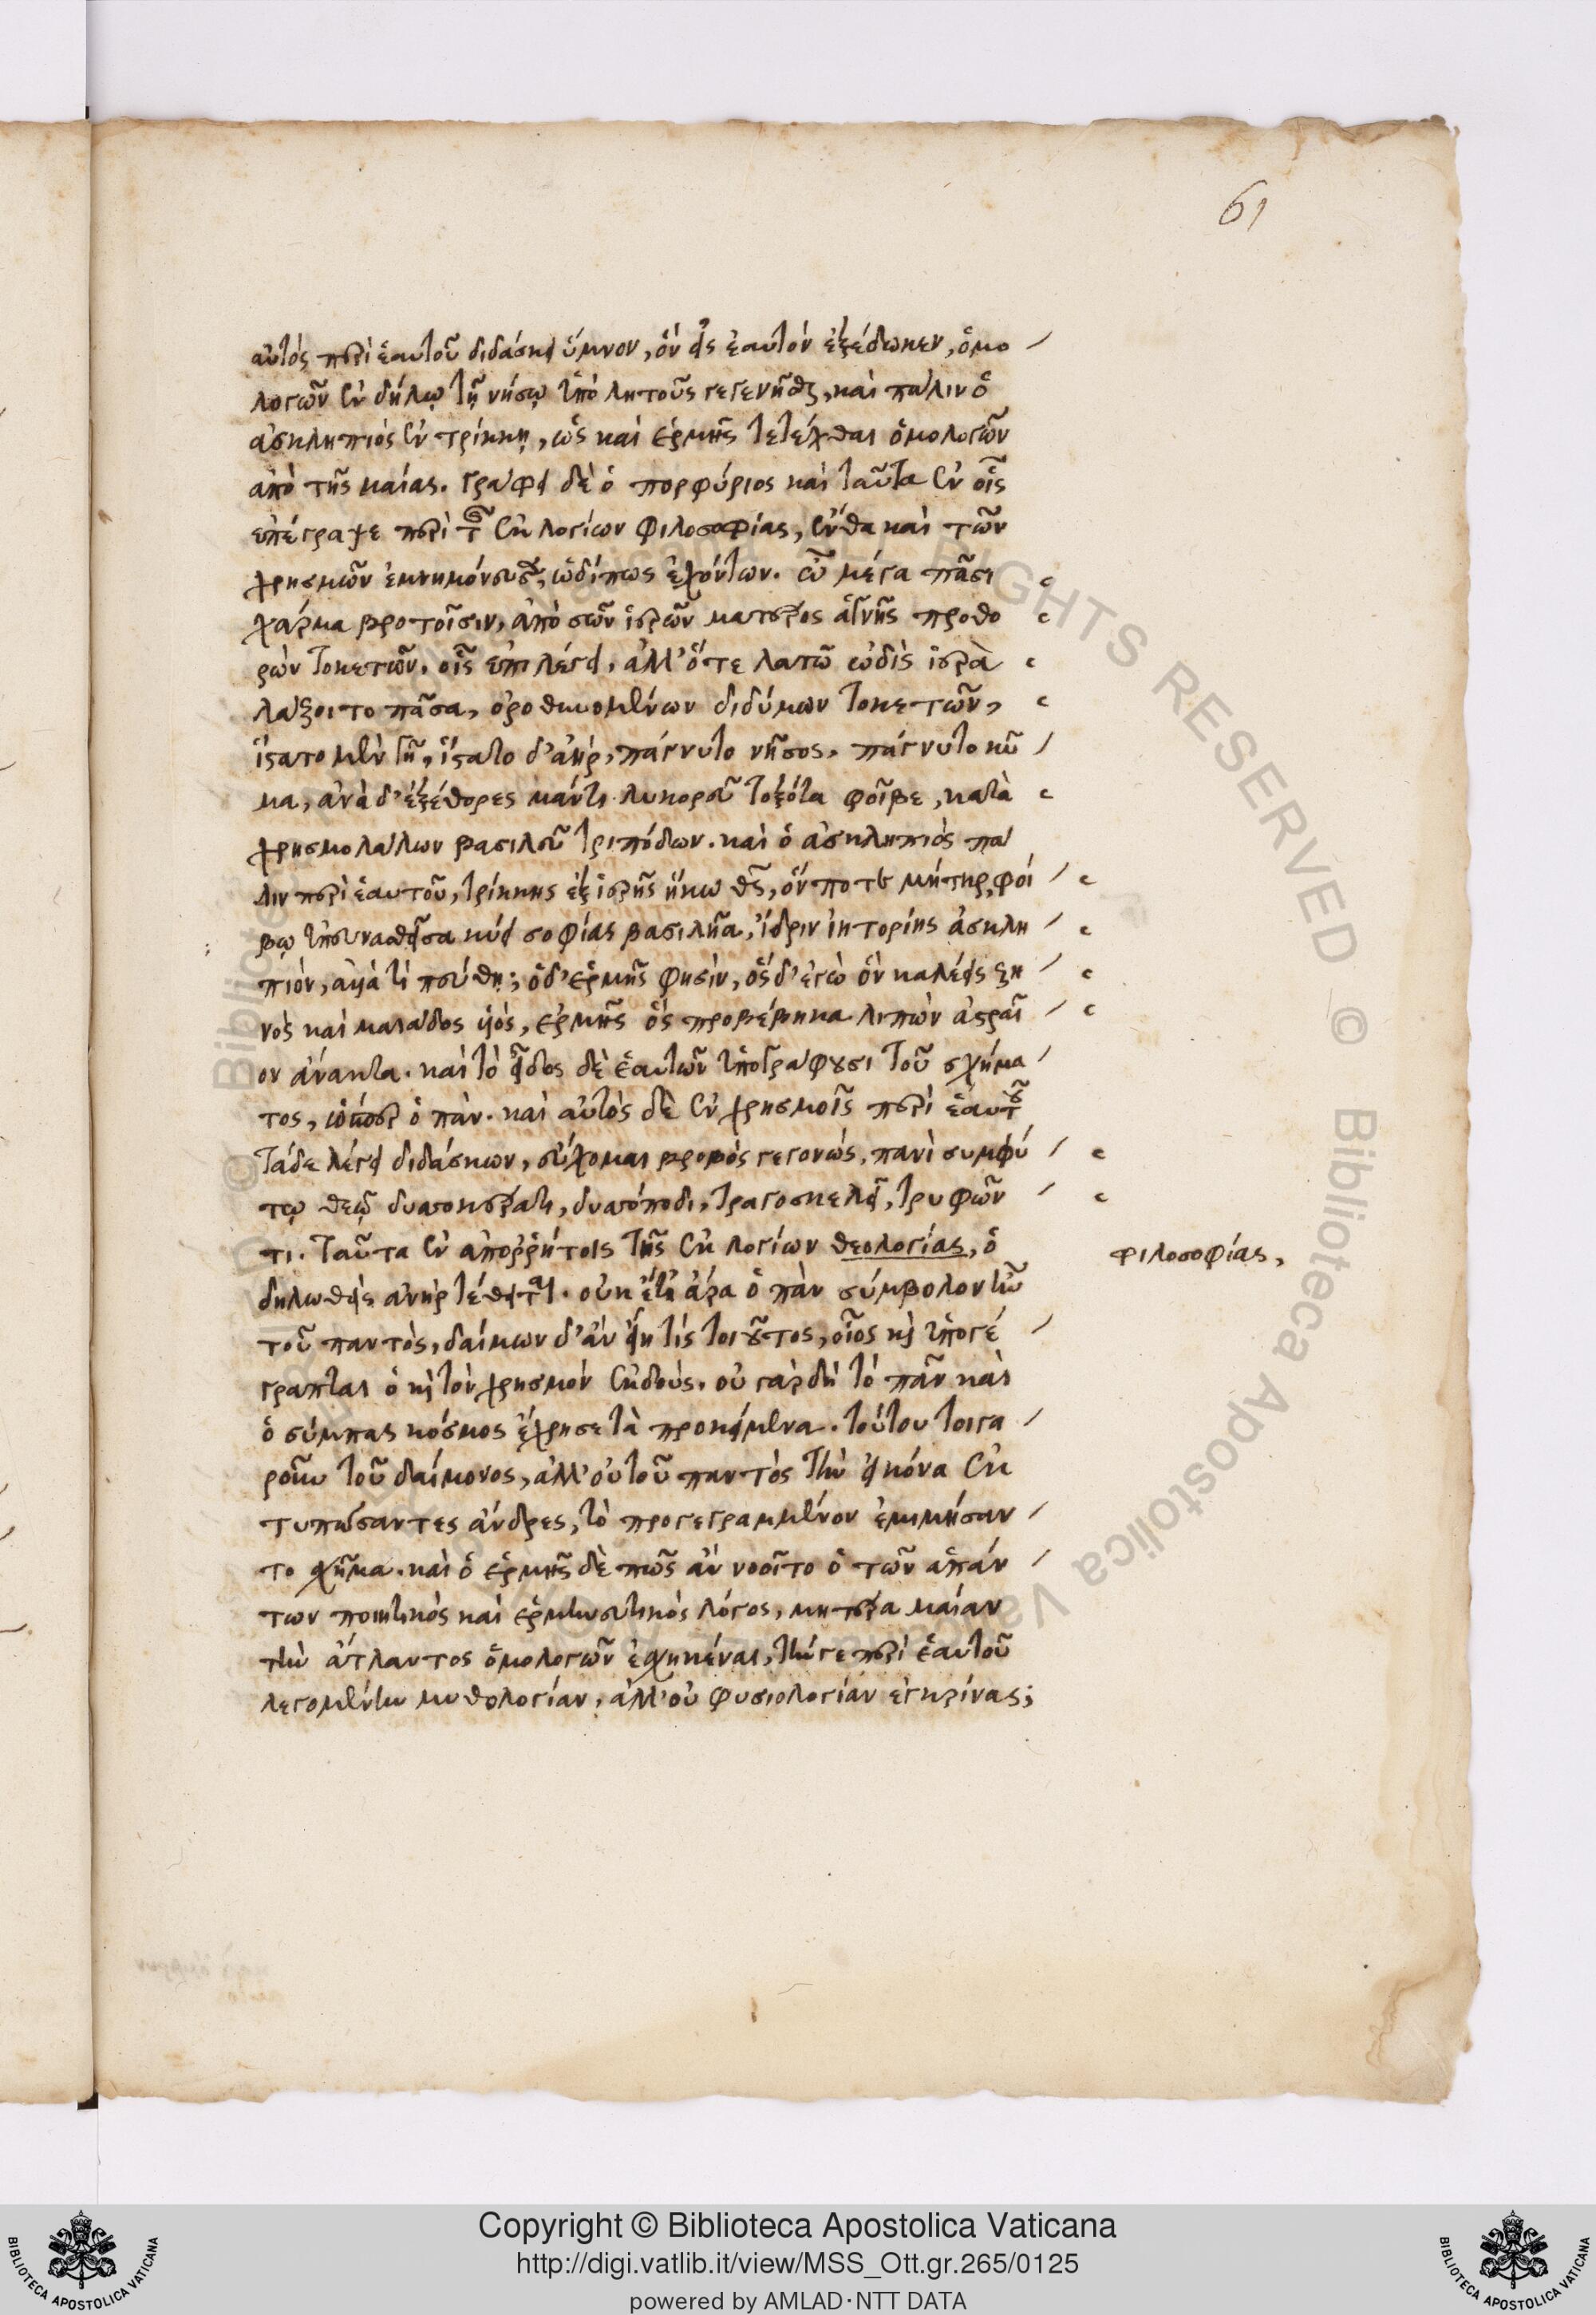 61
αὐτὸς περὶ ἑαυτοῦ διδάσκει ὕμνον, ὃν εἰς ἑαυτὸν ἐξέδωκεν, ὁμο
λογῶν ἐν δήλῳ τῇ νήσῳ ὑπὸ λητοῦς γεγενῆσθαι, καὶ πάλιν ὁ
ἀσκληπιὸς ἐν τρίκκῃ, ὡς καὶ ἑρμῆς τετέχθαι ὁμολογῶν
ἀπὸ τῆς μαίας. γράφει δὲ ὁ πορφύριος καὶ ταῦτα ἐν οἷς
ἐπέγραψε περὶ τῆς ἐκ λογίων φιλοσοφίας, ἔνθα καὶ τῶν
χρησμῶν ἐμνημόνευσεν, ὡδί πως ἐχόντων. ὦ μέγα πᾶσι
χάρμα βροτοῖσιν, ἀπὸ σῶν ἱερῶν ματέρος ἁγνῆς προθο
ρὼν τοκετῶν. οἷς ἐπιλέγει, ἀλλ' ὅτε λατῶ ὠδὶς ἱερὰ
λάξοιτο πᾶσα, ὀροθυνομένων διδύμων τοκετῶν,
ἵστατο μὲν γῆ, ἵστατο δ' ἀὴρ, πάγνυτο νῆσος, πάγνυτο κῦ
μα, ἀνὰ δ' ἐξέθορες μάντι λυκορεῦ τοξότα φοῖβε, κατὰ
χρησμολάλων βασιλεῦ τριπόδων. καὶ ὁ ἀσκληπιὸς πά
λιν περὶ ἑαυτοῦ, τρίκκης ἐξ ἱερῆς ἥκω θεὸς, ὅν ποτε μήτηρ, φοί
βῳ ὑπευνασθεῖσα κύει σοφίας βασιλῆα, ἴδριν ἰητορίης ἀσκλη
πιόν, ἀλλὰ τί πεύθῃ; ὁ δ' ἑρμῆς φησὶν, ὃς δ' ἐγὼ ὃν καλέεις ζη
νὸς καὶ μαιάδος υἱός, ἑρμῆς ὃς προβέβηκα λιπὼν ἀστραῖ
ον ἄνακτα. καὶ τὸ εἶδος δὲ ἑαυτῶν ὑπογράφουσι τοῦ σχήμα
τος, ὥσπερ ὁ πάν. καὶ αὐτὸς δὲ ἐν χρησμοῖς περὶ ἑαυτοῦ
τάδε λέγει διδάσκων, εὔχομαι βροτὸς γεγονώς, πανὶ συμφύ
τῳ θεῷ δυσοκέρατι, δυσόποδι, τραγοσκελεῖ, τρυφῶν
τι. ταῦτα ἐν ἀπορρήτοις τῆς ἐκ λογίων θεολογίας, ὁ
φιλοσοφίας,
δηλωθεὶς ἀνὴρ τέθειται. οὐκ ἔτι ἄρα ὁ πὰν σύμβολον ἦν
τοῦ παντὸς, δαίμων δ' ἂν εἴη τὶς τοιοῦτος, οἷος καὶ ὑπογέ
γραπται ὁ καὶ τὸν χρησμὸν ἐκδούς. οὐ γὰρ δὴ τὸ πᾶν καὶ
ὁ σύμπας κόσμος ἔχρησε τὰ προκείμενα. τούτου τοιγα
ροῦν τοῦ δαίμονος, ἀλλ' οὐ τοῦ παντὸς τὴν εἰκόνα ἐκ
τυπώσαντες ἄνδρες, τὸ προγεγραμμένον ἐμιμήσαν
το σχῆμα. καὶ ὁ ἑρμῆς δὲ πῶς ἂν νοοῖτο ὁ τῶν ἁπάν
των ποιητικὸς καὶ ἑρμηνευτικὸς λόγος, μητέρα μαίαν
τὴν ἄτλαντος ὁμολογῶν ἐσχηκέναι, τήν γε περὶ ἑαυτοῦ
λεγομένην μυθολογίαν, ἀλλ' οὐ φυσιολογίαν ἐγκρίνας;
Copyright © Biblioteca Apostolica Vaticana
http://digi.vatlib.it/view/MSS_Ott.gr.265/0125
powered by AMLAD·NTT DATA